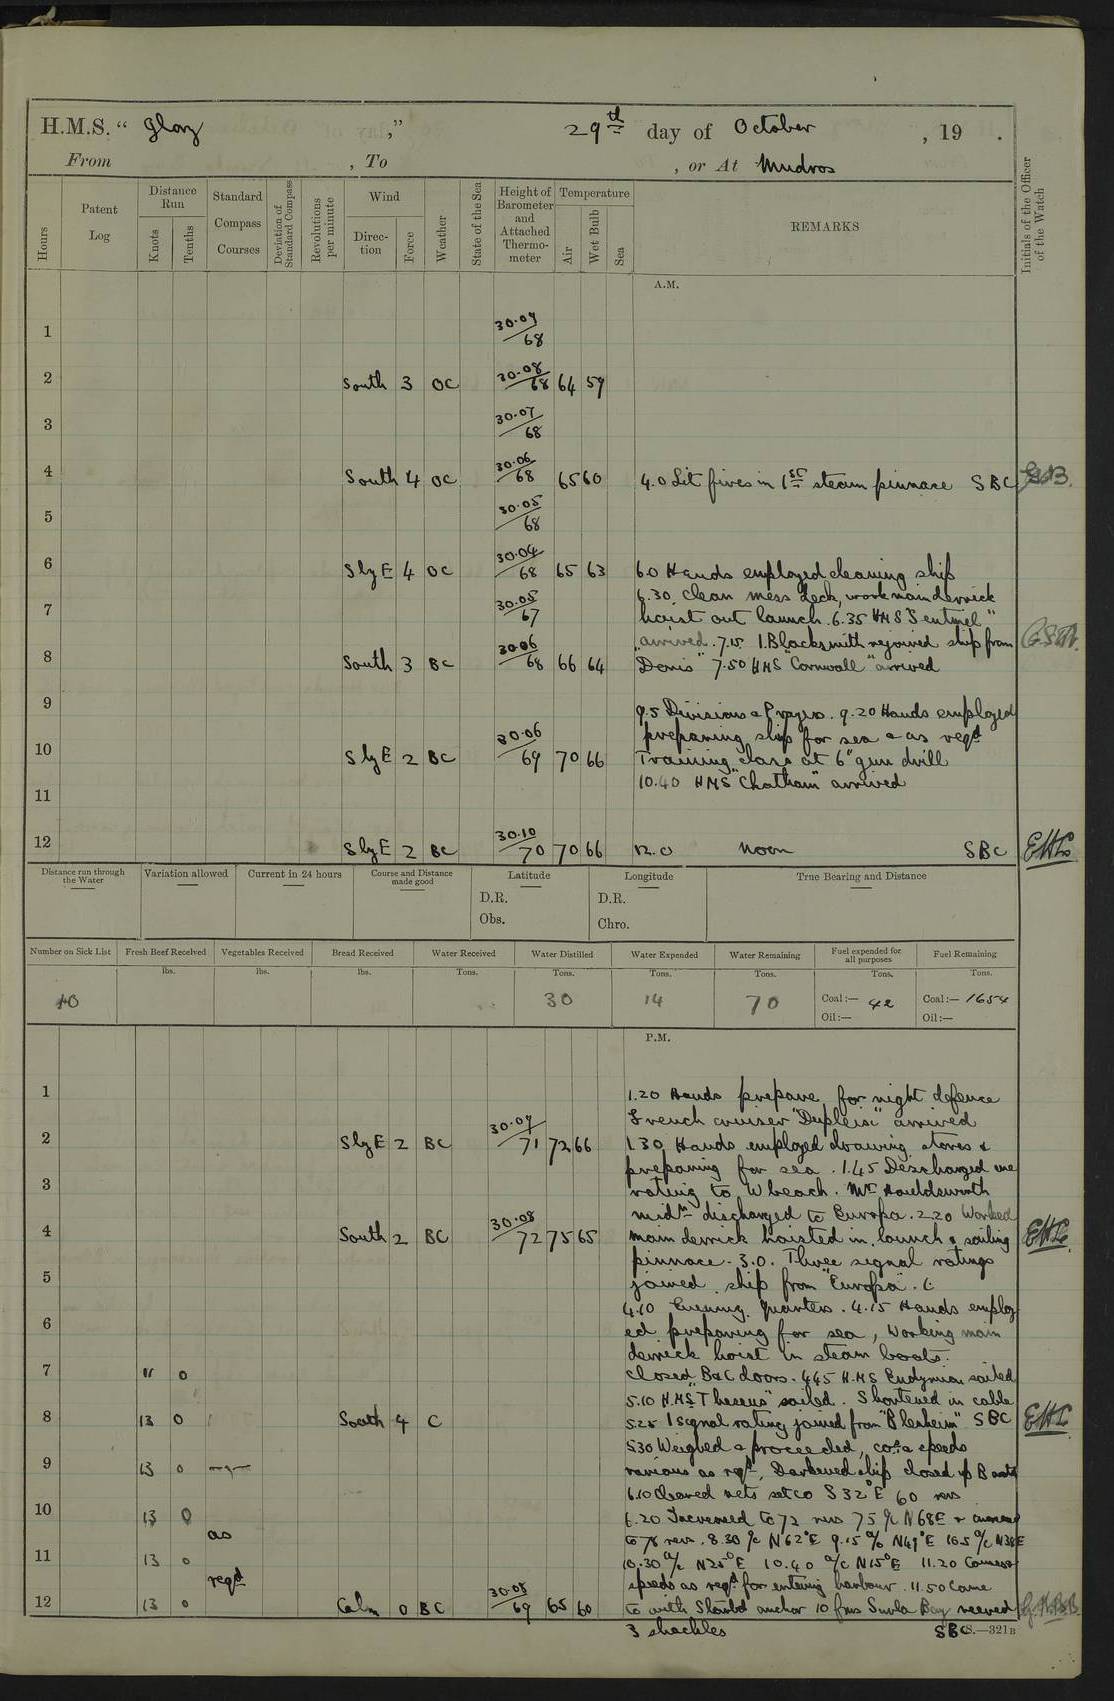 H.M.S. “ Glory ,” 29th day of October , 19 .
From , To , or At Mudros
Hours
Patent Log
Distance Run
Knots
Tenths
Standard Compass Courses
Deviation of Standard Compass
Revolutions per minute
Wind
Direc-tion
Force
Weather
State of the Sea
Height of Barometer and Attached Thermo-meter
Temperature
Air
Wet Bulb
Sea
REMARKS
Initials of the Officer of the Watch
A.M.
1 30.09/68
2 South 3 OC 30.08/68 64 59
3 30.07/68
4 South 4 OC 30.06/68 65 60 4.0 Lit fires in 1st steam pinnace SBC
5 30.05/68
6 SlyE 4 OC 30.04/68 65 63 6.0 Hands employed cleaning ship
6.30. Clean mess deck, work main derrick
7 30.05/67 hoist out launch. 6.35 HMS "Sentinel"
arrived. 7.15 1 Blacksmith rejoined ship from
8 South 3 BC 30.06/68 66 64 "Doris" 7.50 HMS "Cornwall" arrived
9 9.5 Divisions & Prayers. 9.20 Hands employed
preparing ship for sea & as reqd
10 SlyE 2 BC 30.06/69 70 66 Training class at 6" gun drill
10.40 HMS "Chatham" arrived
11
12 SlyE 2 BC 30.10/70 70 66 12.0 Noon SBC
Distance run through the Water
Variation allowed
Current in 24 hours
Course and Distance made good
Latitude
D.R.
Obs.
Longitude
D.R.
Chro.
True Bearing and Distance
Number on Sick List
Fresh Beef Received
Vegetables Received
Bread Received
Water Received
Water Distilled
Water Expended
Water Remaining
Fuel expended for all purposes
Fuel Remaining
lbs. lbs. lbs. Tons. Tons. Tons. Tons. Tons. Tons.
10 30 14 70 Coal:— 42 Coal:— 1654
Oil:— Oil:—
P.M.
1 1.20 Hands prepare for night defence
French cruiser "Dupleix" arrived
2 SlyE 2 BC 30.09/71 72 66 1.30 Hands employed drawing stores &
preparing for sea. 1.45 Discharged one
3 rating to W beach. Mr Houldsworth
midn discharged to Europa. 2.20 Worked
4 South 2 BC 30.08/72 75 65 main derrick hoisted in launch & sailing
pinnace. 3.0. Three signal ratings
5 joined ship from "Europa".
4.10 Evening Quarters. 4.15 Hands employ
6 ed preparing for sea, Working main
derrick hoist in steam boats.
7 11 0 Closed B&C doors. 4.45 H.M.S Endymion sailed
5.10 H.M.S "Theseus" sailed. Shortened in cable
8 13 0 South 4 C 5.25 1 signal rating joined from "Blenheim" SBC
5.30 Weighed & proceeded, cos & speeds
9 13 0 various as reqd. Darkened ship closed up B
6.10 Cleared nets set co S32°E 60 revs
10 13 0 6.20 Increased to 72 revs 7.5 a/c N68E &
as
to 78 revs. 8.30 a/c N62°E 9.15 a/c N49°E 10.5 a/c N38E
11 13 0 10.30 a/c N25°E 10.40 a/c N15°E 11.20 Courses
reqd
speeds as reqd for entering harbour. 11.50 Came
12 13 0 Calm 0 BC 30.08/69 65 60 to with Starbd anchor 10 fms Suvla Bay veered
3 shackles SBC
S.—321B